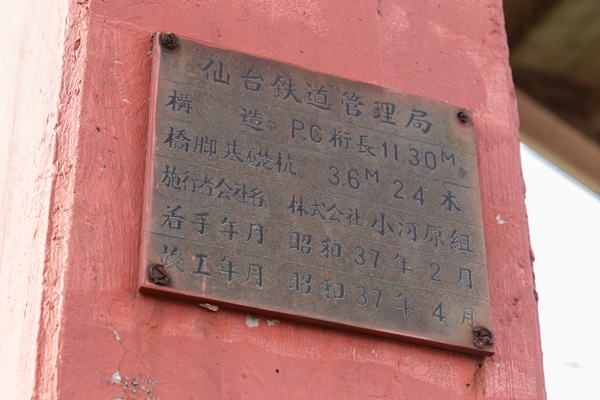 仙台鉄道管理局
構造 P.C桁長11.30M
橋脚基礎杭 3.6M 24本
施行者会社名 株式会社小河原組
着手年月 昭和37年2月
竣工年月 昭和37年4月